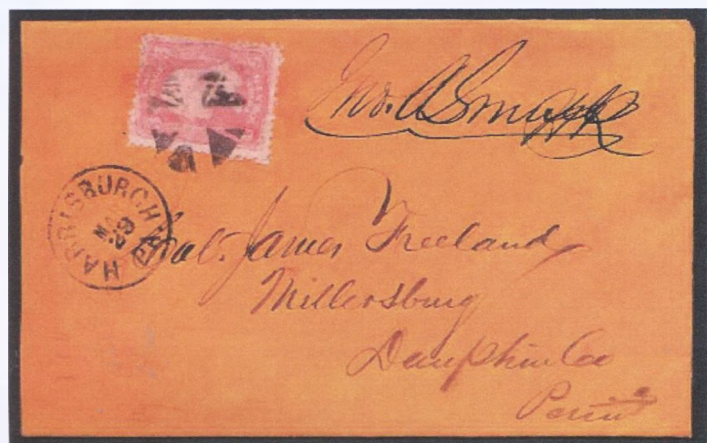 Jno. A Smull
HARRISBURGH PA
MAR
29
Col. James Freeland
Millersburg
Dauphin Co
Penna